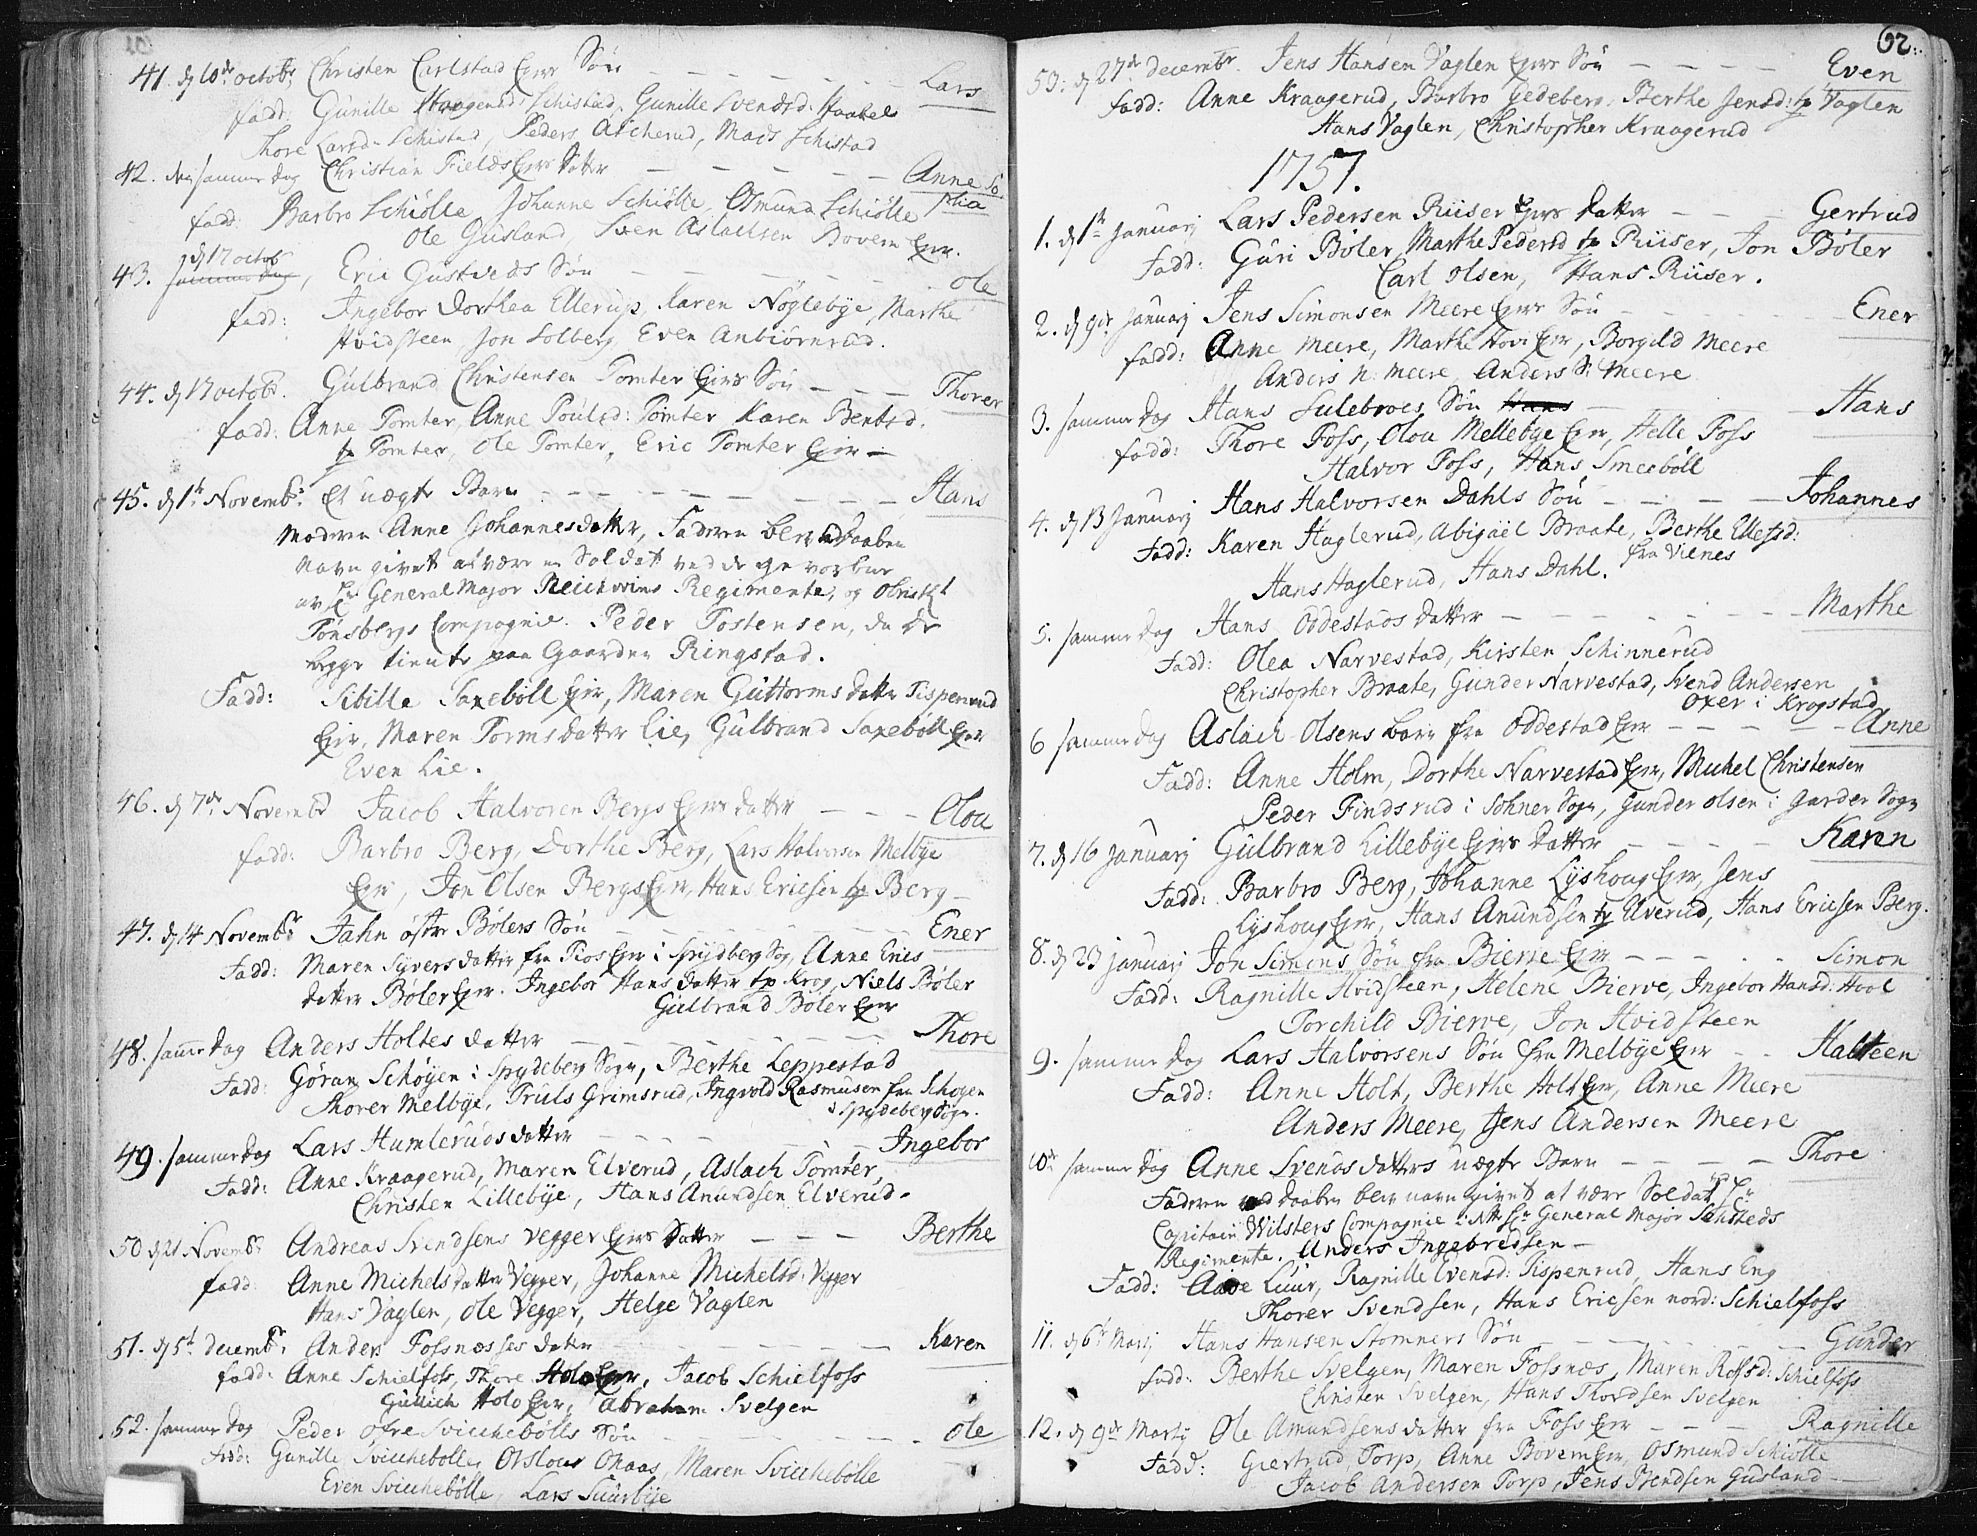 41. d 10de octobr Christen Carlstad Ejers Søn - - - - - Lars
fadd: Gunille Haagensd: Schistad, Gunille Svendsd: Haakel
Thore Larsd. Schistad, Peders Ascherud, Mads Schistad
42. den samme dag Christian Fields Ejers datter - - - - - Anne So
phia
fadd. Barbro Schiølle, Johanne Schiølle, Osmund Schiølle
Ole Gusland, Sven Aslachsen Bovem Ejer.
d 17 octob
43. samme dag, Eric Gustveds Søn - - - - - Ole
fadd: Ingebor Dorthea Ellerup, Karen Nøglebye, Marthe
Hvidsteen, Jon Solberg, Even Anbiørnrud.
44. d 17 octobr. Gulbrand Christensen Tomter Ejers Søn - - - Thorer
fadd: Anne Tomter, Anne Poulsd: Tomter Karen Bentsd.
Tomter, Ole Tomter, Eric Tomter Ejer -
45. d 1te Novembr. Et uægte Barn - - - - - Hans
Moderen Anne Johannesdatter, Faderen blev ved daaben
navn givet at være en Soldat ved de gevorbne
av General Major Reichweins Regimente, og Obristl
Tønsbergs Compagnie. Peder Tostensen, da de
begge tiente paa Gaarden Ringstad.
Fadd: Sibilla Saxebøll Ejer, Maren Guttorms datter Tispenrud
Ejer, Maren Tormsdatter Lie, Gulbrand Saxebøll Ejer
Even Lie.
46. d 7de Novembr Jacob Halvoren Bergs Ejers datter - - - Oloa
fadd: Barbro Berg, Dorthe Berg, Lars Halvorsen Melbye
Ejer, Jon Olsen Bergs Ejer, Hans Ericsen Berg -
47. d 14 Novembr Jahn østre Bølers Søn - - - - - Ener
Fadd: Maren Syversdatter fra Ejer i Spydberg Sog, Anne Erics
datter Bøler Ejer. Ingebor Hans datter Krog, Niels Bøler
Gulbrand Bøler Ejer
48. samme dag Anders Holtes datter - - - - - Thore
Fadd: Gøran Schøyen i Spydeberg Sogn, Berthe Leppestad
Thorer Melbye, Truls Grimsrud, Ingvold Rasmusen fra Schøyen
i Spydeberg Sogn.
49. samme dag Lars Humleruds datter - - - - - Ingebor
Fadd: Anne Kraagerud, Maren Elverud, Aslach Tomter,
Christen Lillebye, Hans Anundsen Elverud.
50 d 21 Novembr Andreas Svendsens Vegger Ejers datter - - - Berthe
fadd: Anne Michelsdatter Vegger, Johanne Michelsd: Vegger
Hans Vaglen, Ole Vegger, Helge Vaglen
51. d 5te decembr Anders Fossnæsses datter - - - - - Karen
fadd: Anne Schielfoss, Thore Holo Ejer, Jacob Schielfoss
Gullich Holo Ejer, Abraham Svelgen
52. samme dag Peder øfre Svicchebølls Søn - - - - - Ole
fadd: Gunille Svicchebølle, Oloug Ohaas, Maren Svicchebølle
Even Svicchebølle, Lars Suurbye
62:
53: d 27de decembr. Jens Hansen Vaglen Ejers Søn - - - - Even
fadd: Anne Kraagerud, Barbro Gedeberg, Berthe Jensd: Vaglen
Hans Vaglen, Christopher Kraagerud
1757.
1. d 1te Januarj Lars Pedersen Riiser Ejers datter - - - Gertrud
Fadd: Guri Bøler, Marthe Pedersd Riiser, Jon Bøler
Carl Olsen, Hans Riiser.
2. d 9de Januarj Jens Simonsen Meere Ejers Søn - - - - - Ener
fadd: Anne Meere, Marthe Hovi Ejer, Borgild Meere
Anders N: Meere, Anders S: Meere
3. samme dag Hans Sulebroes Søn Hans - - - - Hans
fadd: Thore Foss, Oloa Mellebye Ejer, Helle Foss
Halvor Foss, Hans Smeebøll
4. d 13 Januarj Hans Halvorsen Dahls Søn - - - - - Johannes
Fadd: Karen Haglerud, Abigäel Braate, Berthe Ellefsd:
fra Vienes
Hans Haglerud, Hans Dahl.
5. samme dag Hans Oddestads datter - - - - - Marthe
Fadd: Olea Narvestad, Kirsten Schinnerud
Christopher Braate, Gunder Narvestad, Svend Andersen
Oxer i Krogstad
6 samme dag Aslach Olsens barn fra Oddestad Ejer - - - - - Anne
Fadd: Anne Holm, Dorthe Narvestad Ejer, Michel Christensen
Peder Findsrud i Sohner Sogn, Gunder Olsen i Garder Sogn
7. d 16 Januarj Gulbrand Lillebye Ejers datter - - - - Karen
Fadd: Barbro Berg, Johanne Lyshoug Ejer, Jens
Lyshoug Ejer, Hans Anundsen Elverud, Hans Ericsen Berg.
8. d 23 Januarj Jon Simens Søn fra Bierve Ejer - - - - - Simon
Fadd: Ragnille Hvidsteen, Helene Bierve, Ingebor Hansd: Hool
Torchild Bierve, Jon Hvidsteen
9. samme dag Lars Halvorsens Søn fra Melbye Ejer - - Halsteen
Fadd: Anne Holt, Berthe Holt Ejer, Anne Meere
Anders Meere, Jens Andersen Meere
10de samme dag Anne Svends datters uægte Barn - - - - Thore
Faderen ved daaben blev navn givet at være Soldat
Capitain Wilsters Compagnie i General Major Sensteds
Regimente. Anders Ingebredsen -
Fadd: Luur, Ragnille Evensd: Tispenrud, Hans Eng
Thorer Svendsen, Hans Ericsen nord: Schielfoss
11. d 6te Martj Hans Hansen Stomners Søn - - - - - Gunder
fadd: Berthe Svelgen, Maren Fossnæs, Maren Rolfsd: Schielfoss
Christen Svelgen, Hans Thordsen Svelgen
12. d 9de Martij Ole Amundsens datter fra Foss Ejer - - - Ragnille
Fadd: Giertrud Torp, Anne Bovem Ejer, Osmund Schiølle
Jacob Andersen Torp, Jens Bendsen Gusland